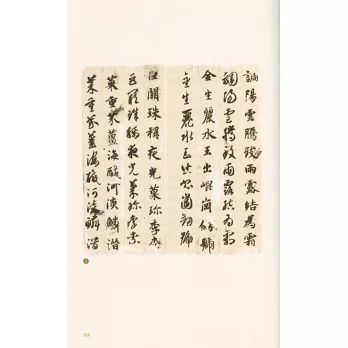 調陽雲騰致雨露結為霜
調陽雲騰致雨露結為霜
金生麗水玉出崐崗劍號
金生麗水玉出崐崗劍號
巨闕珠稱夜光菓珍李柰
巨闕珠稱夜光菓珍李柰
菜重芥薑海醎河淡鱗潛
菜重芥薑海醎河淡鱗潛